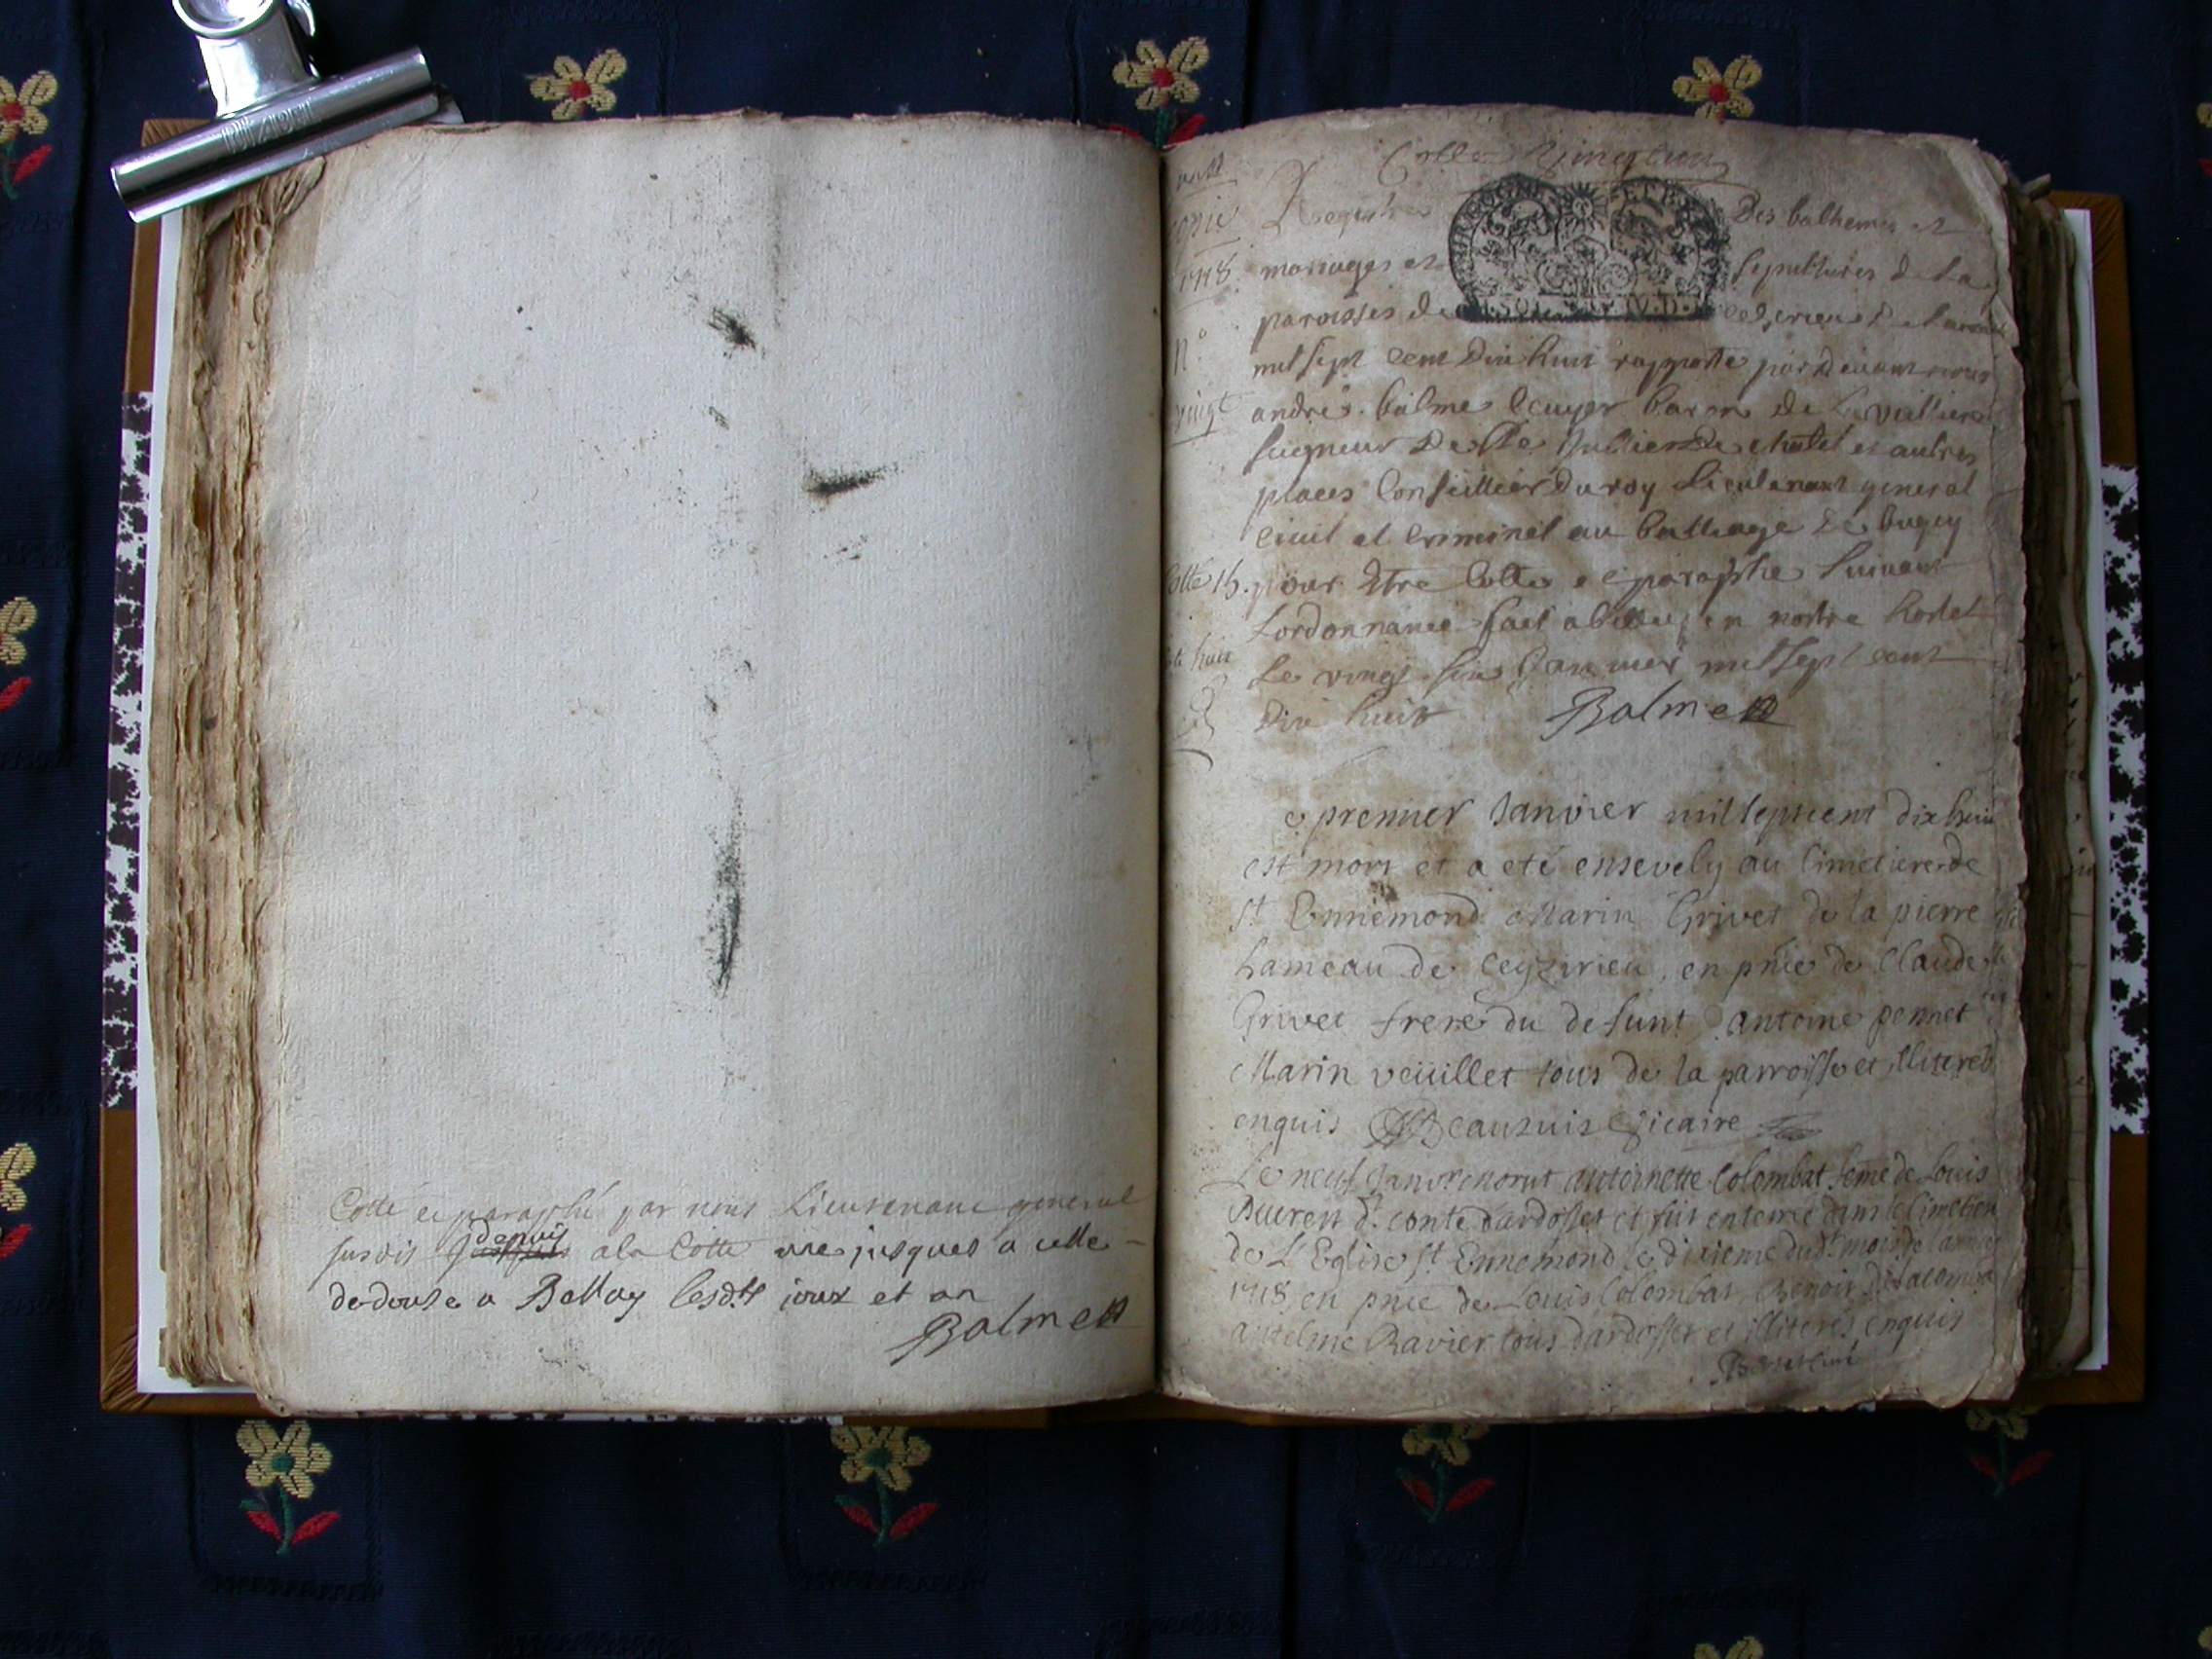 Cotté et paraphé par nous Lieutenant general
susdit depuis a la Cotte une jusques a celle
de douse a Bellay lesdts jour et an
Balme
copie
1718.
n°
vingt
Cotte 15.
huit
Registre Des bathemes et
mariages et sepultures de La
paroisses de Ceyzerieu
mil sept cent Dix huit rapporté par devant nous
andré balme Ecuyer baron de
seigneur De Ste Jullie De chatel et autres
places Conseiller du roy Lieutenant general
civil et Criminel au balliage de bugey
pour Etre Cotte et paraphe suivant
Lordonnance fait a belley en nostre hostel
Le vingt six Janvier mil sept cent
Dix huit Balme
e premier Janvier mil septcent dix huit
est mort et a eté ensevely au Cimetiere de
St Ennemond Marin Grivet de la pierre
hameau de ceyzirieu, en pnce de Claude
Grivet frere du defunt, antoine pennet
Marin veüillet tous de la parroisse et illiterés
enquis Vicaire
Le neuf Janvr morut antoinette Colombat feme de Louis
dt conte dardosset et fut enterrée dans le Cimetiere
de L'Eglise St Ennemond le dixieme dudt mois de l'année
1718, en pnce de Louis Colombat, Benoit
antelme Ravier tous dardosset et illiterés enquis